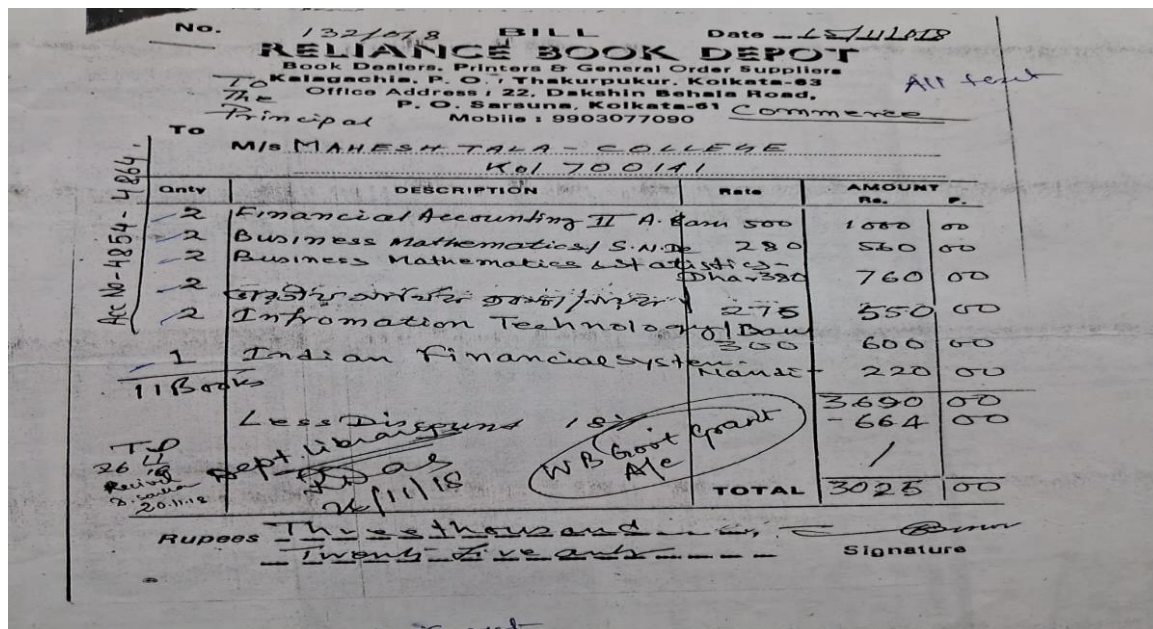 No. 132/018 BILL Date
RELIANCE BOOK DEPOT
Book Dealers, Printers & General Order Suppliers
Kalagachia, P. O. : Thakurpukur, Kolkata-63
Office Address : 22, Dakshin Behala Road,
P. O. Sarsuna, Kolkata-61
Mobile : 9903077090
All text
Commerce
To
The
Principal
To
M/s MAHESHTALA - COLLEGE
Kol 700141
Acc No - 4854 - 4864.
Qnty DESCRIPTION Rate AMOUNT
Rs. P.
2 Financial Accounting II A. 500 1000 00
2 Business Mathematics / S.N.De 280 560 00
2 Business Mathematics & Statistics -
Dhar 380 760 00
2 275 550 00
2 Infromation Technology /
300 600 00
1 Indian Financial system -
Nandi - 220 00
11 Books
3690 00
Less Discount - 664 00
WB Govt Grant
A/c
Dept. library
26/11/18
20.11.18
TOTAL 3025 00
Rupees Three thousand
Twenty five only
Signature